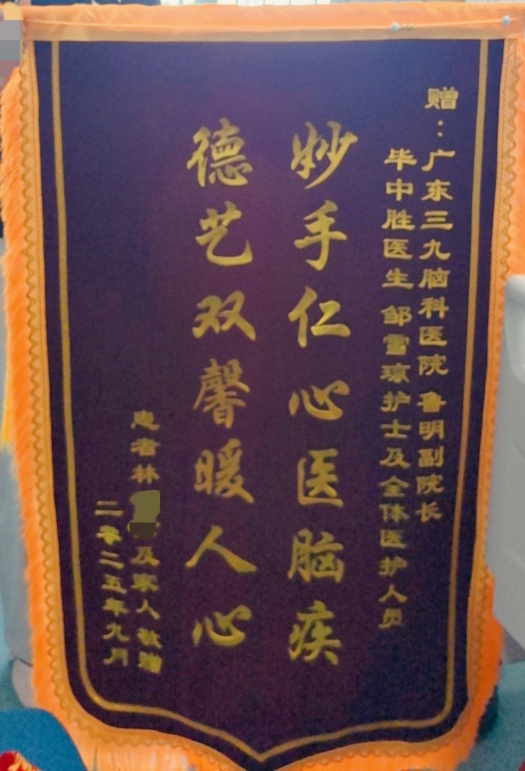 赠：广东三九脑科医院 鲁明副院长
毕中胜医生 邹雪琼护士及全体医护人员
妙手仁心医脑疾
德艺双馨暖人心
患者林 及家人 敬赠
二零二五年九月